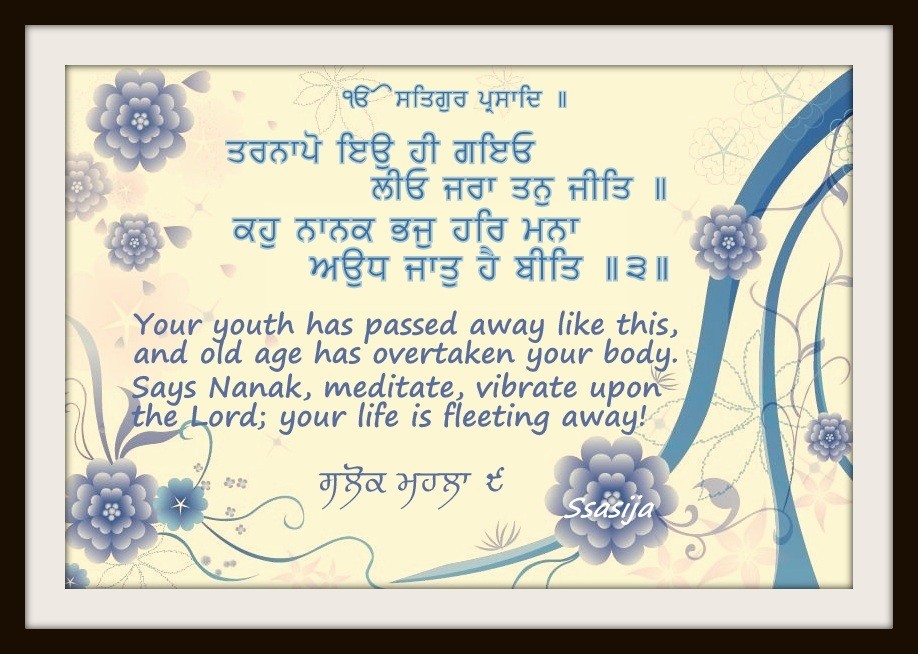 ੴ ਸਤਿਗੁਰ ਪ੍ਰਸਾਦਿ ॥
ਤਰਨਾਪੋ ਇਉ ਹੀ ਗਇਓ
ਲੀਓ ਜਰਾ ਤਨੁ ਜੀਤਿ ॥
ਕਹੁ ਨਾਨਕ ਭਜੁ ਹਰਿ ਮਨਾ
ਅਉਧ ਜਾਤੁ ਹੈ ਬੀਤਿ ॥੩॥
Your youth has passed away like this,
and old age has overtaken your body.
Says Nanak, meditate, vibrate upon
the Lord; your life is fleeting away!
ਸਲੋਕ ਮਹਲਾ ੯
Ssasija